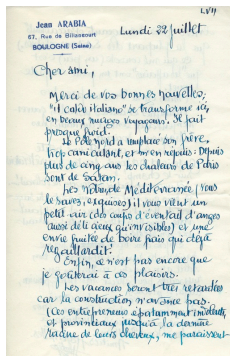 Jean ARABIA
67, Rue de Billancourt
BOULOGNE (Seine)
Lundi 22 juillet
Cher ami,
Merci de vos bonnes nouvelles,
"il caldo italiano" se transforme ici,
en beaux nuages voyageurs. Il fait
presque froid.
Le Pôle nord a remplacé son frère,
trop caniculant, et on en repose. Depuis
plus de cinq ans les chaleurs de Paris
sont de Satan.
Les nords de Méditerranée (vous
le savez, exquises) il vous vient un
petit air (des coups d'éventail d'anges
aussi délicieux qu'invisibles) et une
envie fruitée de boire frais qui déjà
regaillardit.
Enfin, ce n'est pas encore que
je goûterai à ces plaisirs.
Les vacances seront très retardées
car la construction n'avance pas.
(Ces entrepreneurs épatamment invoués,
et provinciaux jusqu'à la dernière
racine de leurs cheveux, me paraissent